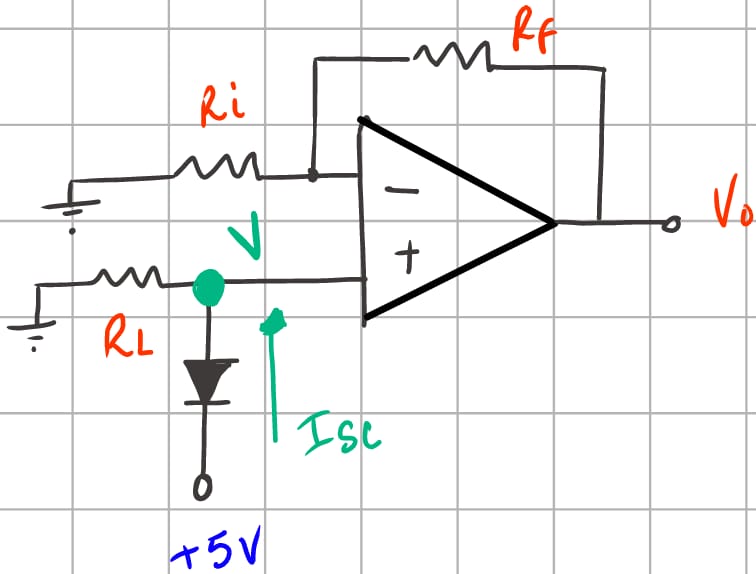 RF
Ri
−
Vo
V
+
RL
Isc
+5V